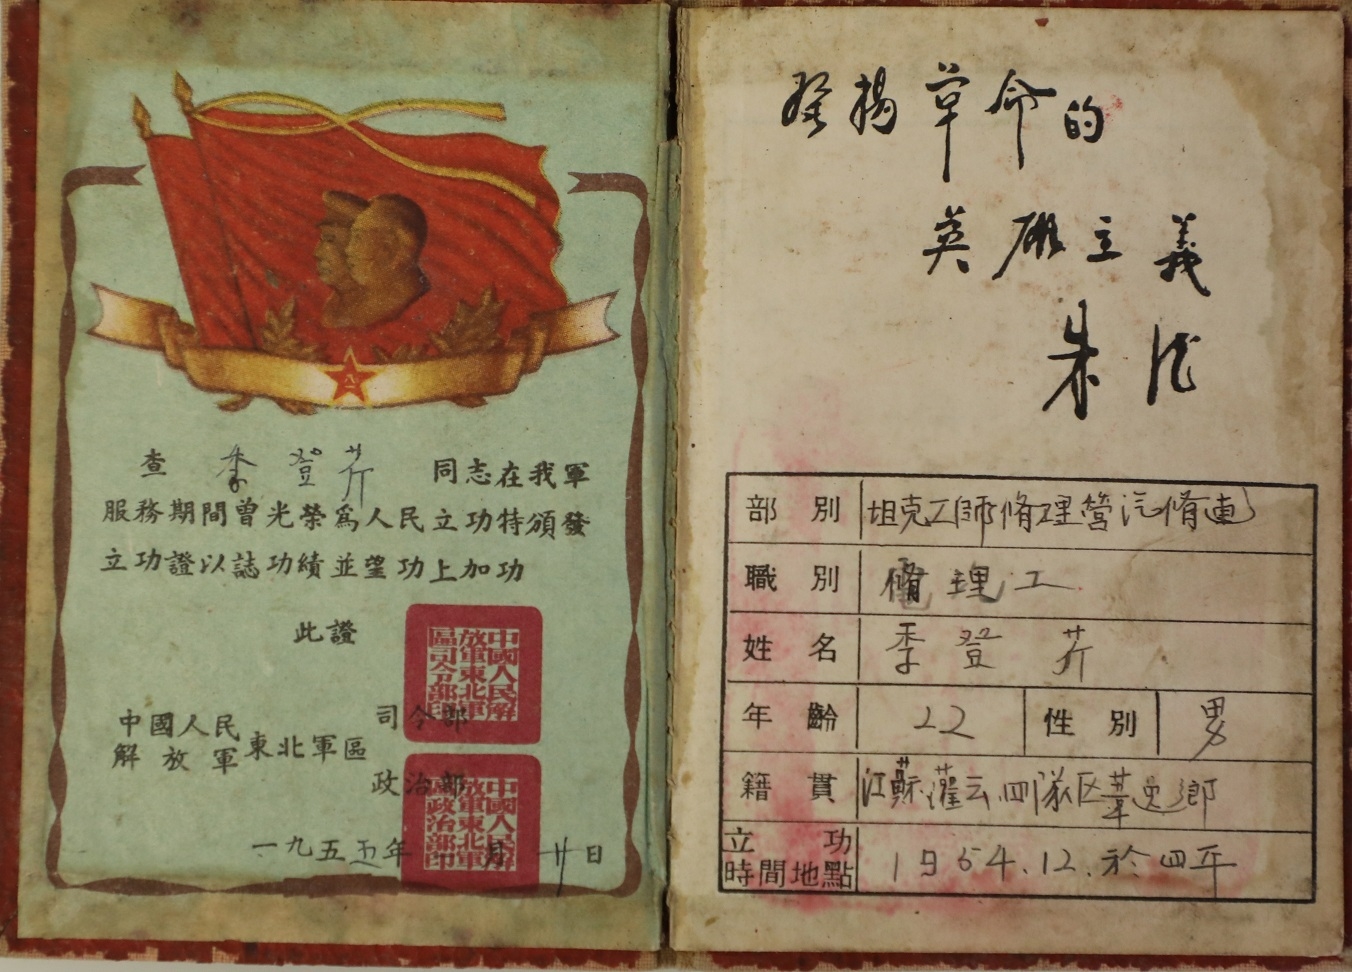 八一
查 季登芥 同志在我軍
服務期間曾光榮爲人民立功特頒發
立功證以誌功績並望功上加功
此證
中國人民解放軍東北軍區司令部印
中國人民
解放軍
東北軍區
司令部
政治部
中國人民解放軍東北軍區政治部印
一九五五年 月廿日
發揚革命的
英雄主義
朱德
部別 坦克工師脩理營汽脩連
職別 脩理工
姓名 季登芥
年齡 22 性別 男
籍貫 江蘇灌云四隊区 鄉
立功
時間地點 1954.12.於四平